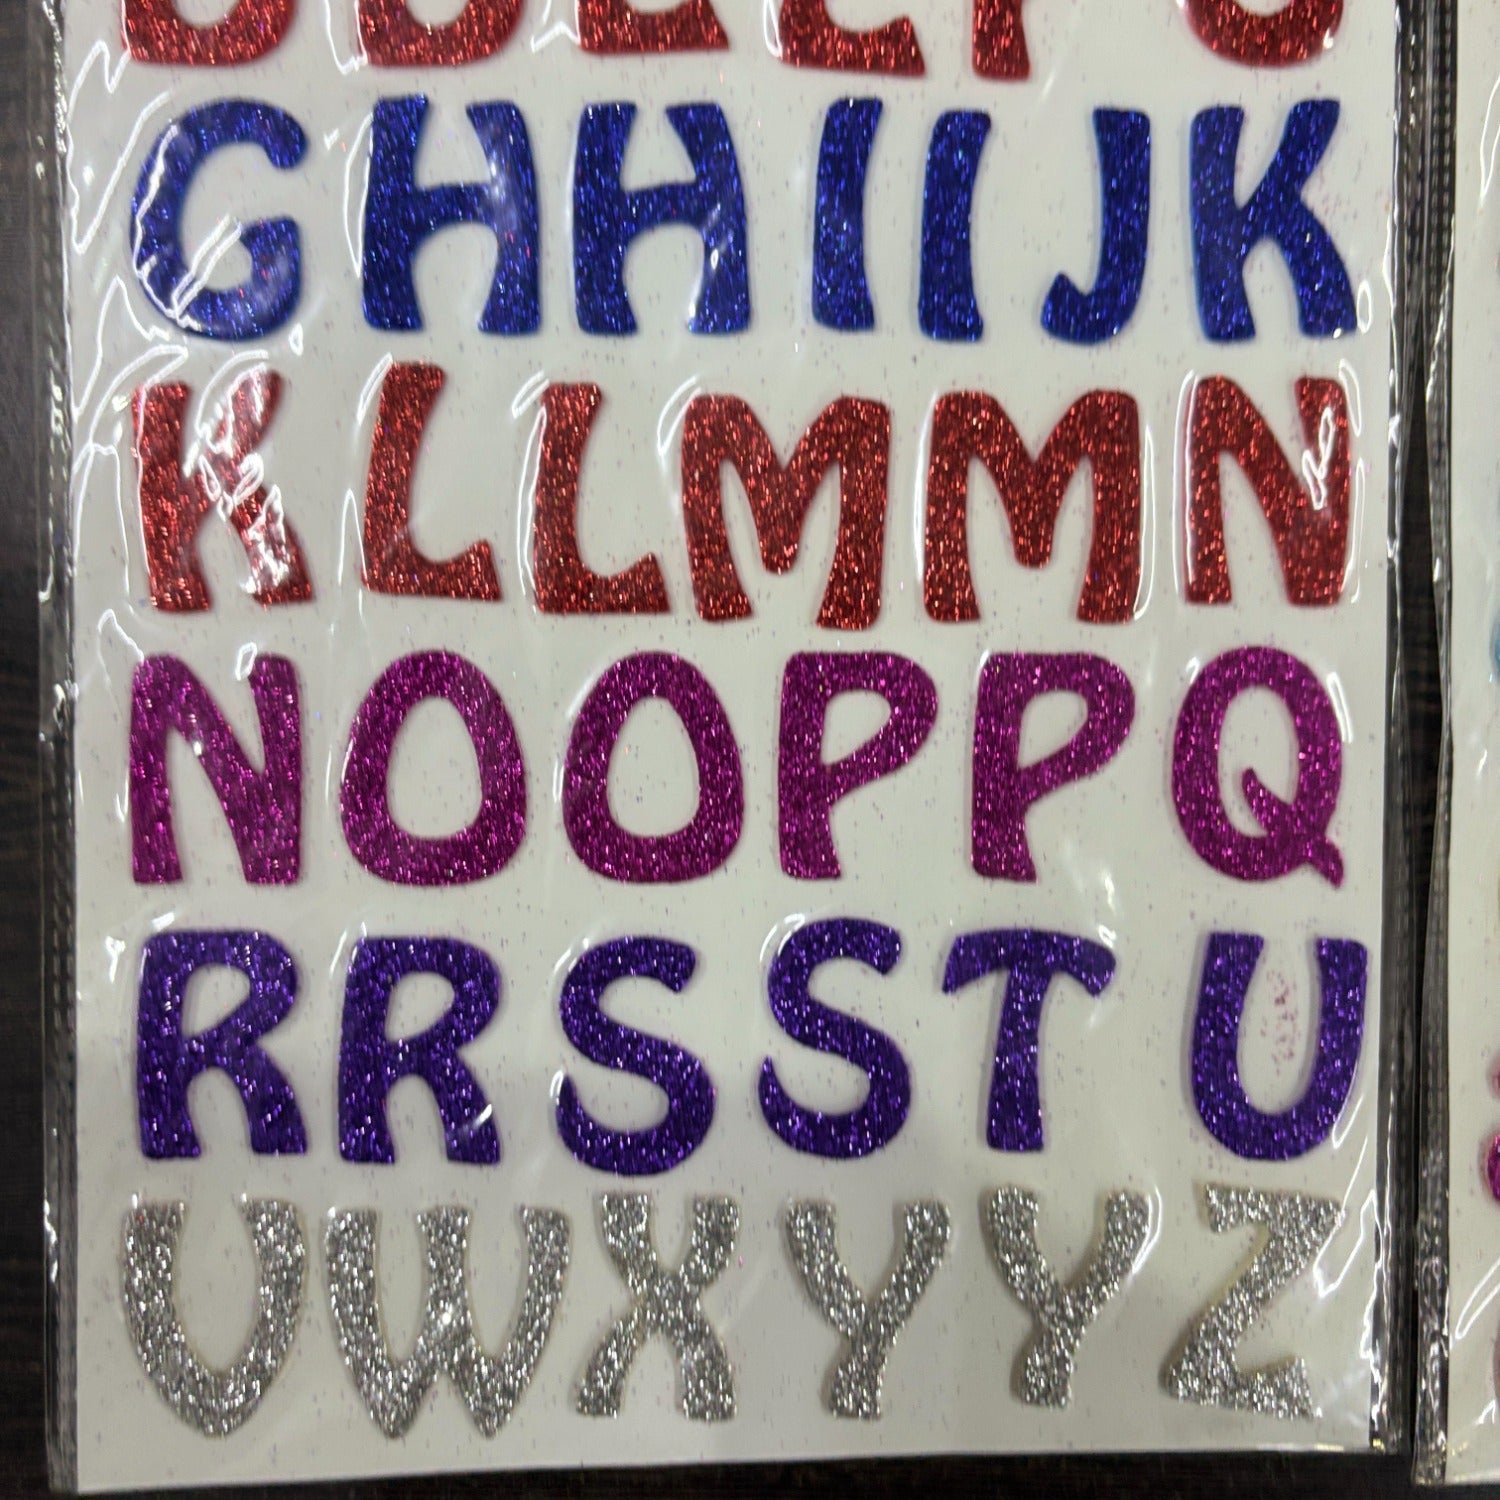 D D E E F G
G H H I I J K
K L L M M N
N O O P P Q
R R S S T U
V W X Y Y Z